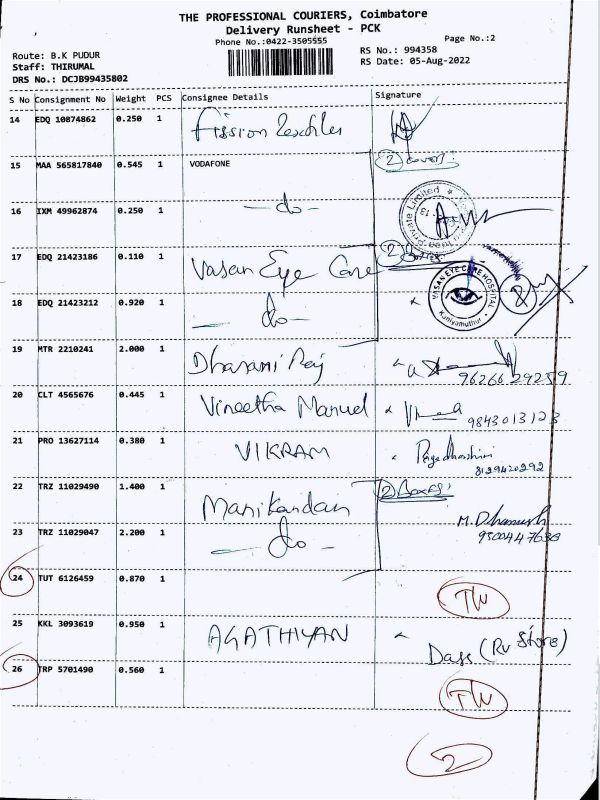 THE PROFESSIONAL COURIERS, Coimbatore
Delivery Runsheet - PCK
Phone No.:0422-3505555
Page No.:2
Route: B.K PUDUR
Staff: THIRUMAL
DRS No.: DCJB99435802
RS No.: 994358
RS Date: 05-Aug-2022
S No Consignment No Weight PCS Consignee Details Signature
14 EDQ 10874862 0.250 1 Fission
15 MAA 565817840 0.545 1 VODAFONE 2 covers
16 IXM 49962874 0.250 1 -do-
Private Limited
17 EDQ 21423186 0.110 1 Vasan Eye Care 2
18 EDQ 21423212 0.920 1 -do-
VASAN EYE CARE HOSPITAL
Kuniyamuthur
19 MTR 2210241 2.000 1 Dharani Raj
9626629259
20 CLT 4565676 0.445 1 Vineetha Manuel
9843013123
21 PRO 13627114 0.380 1 VIKRAM
8129420292
22 TRZ 11029490 1.400 1 Manikandan 2 Boxes
23 TRZ 11029047 2.200 1 -do- M. Dhanush
9500447636
24 TUT 6126459 0.870 1 TW
25 KKL 3093619 0.950 1 AGATHIYAN Dass (Rv Store)
26 TRP 5701490 0.560 1 TW
2